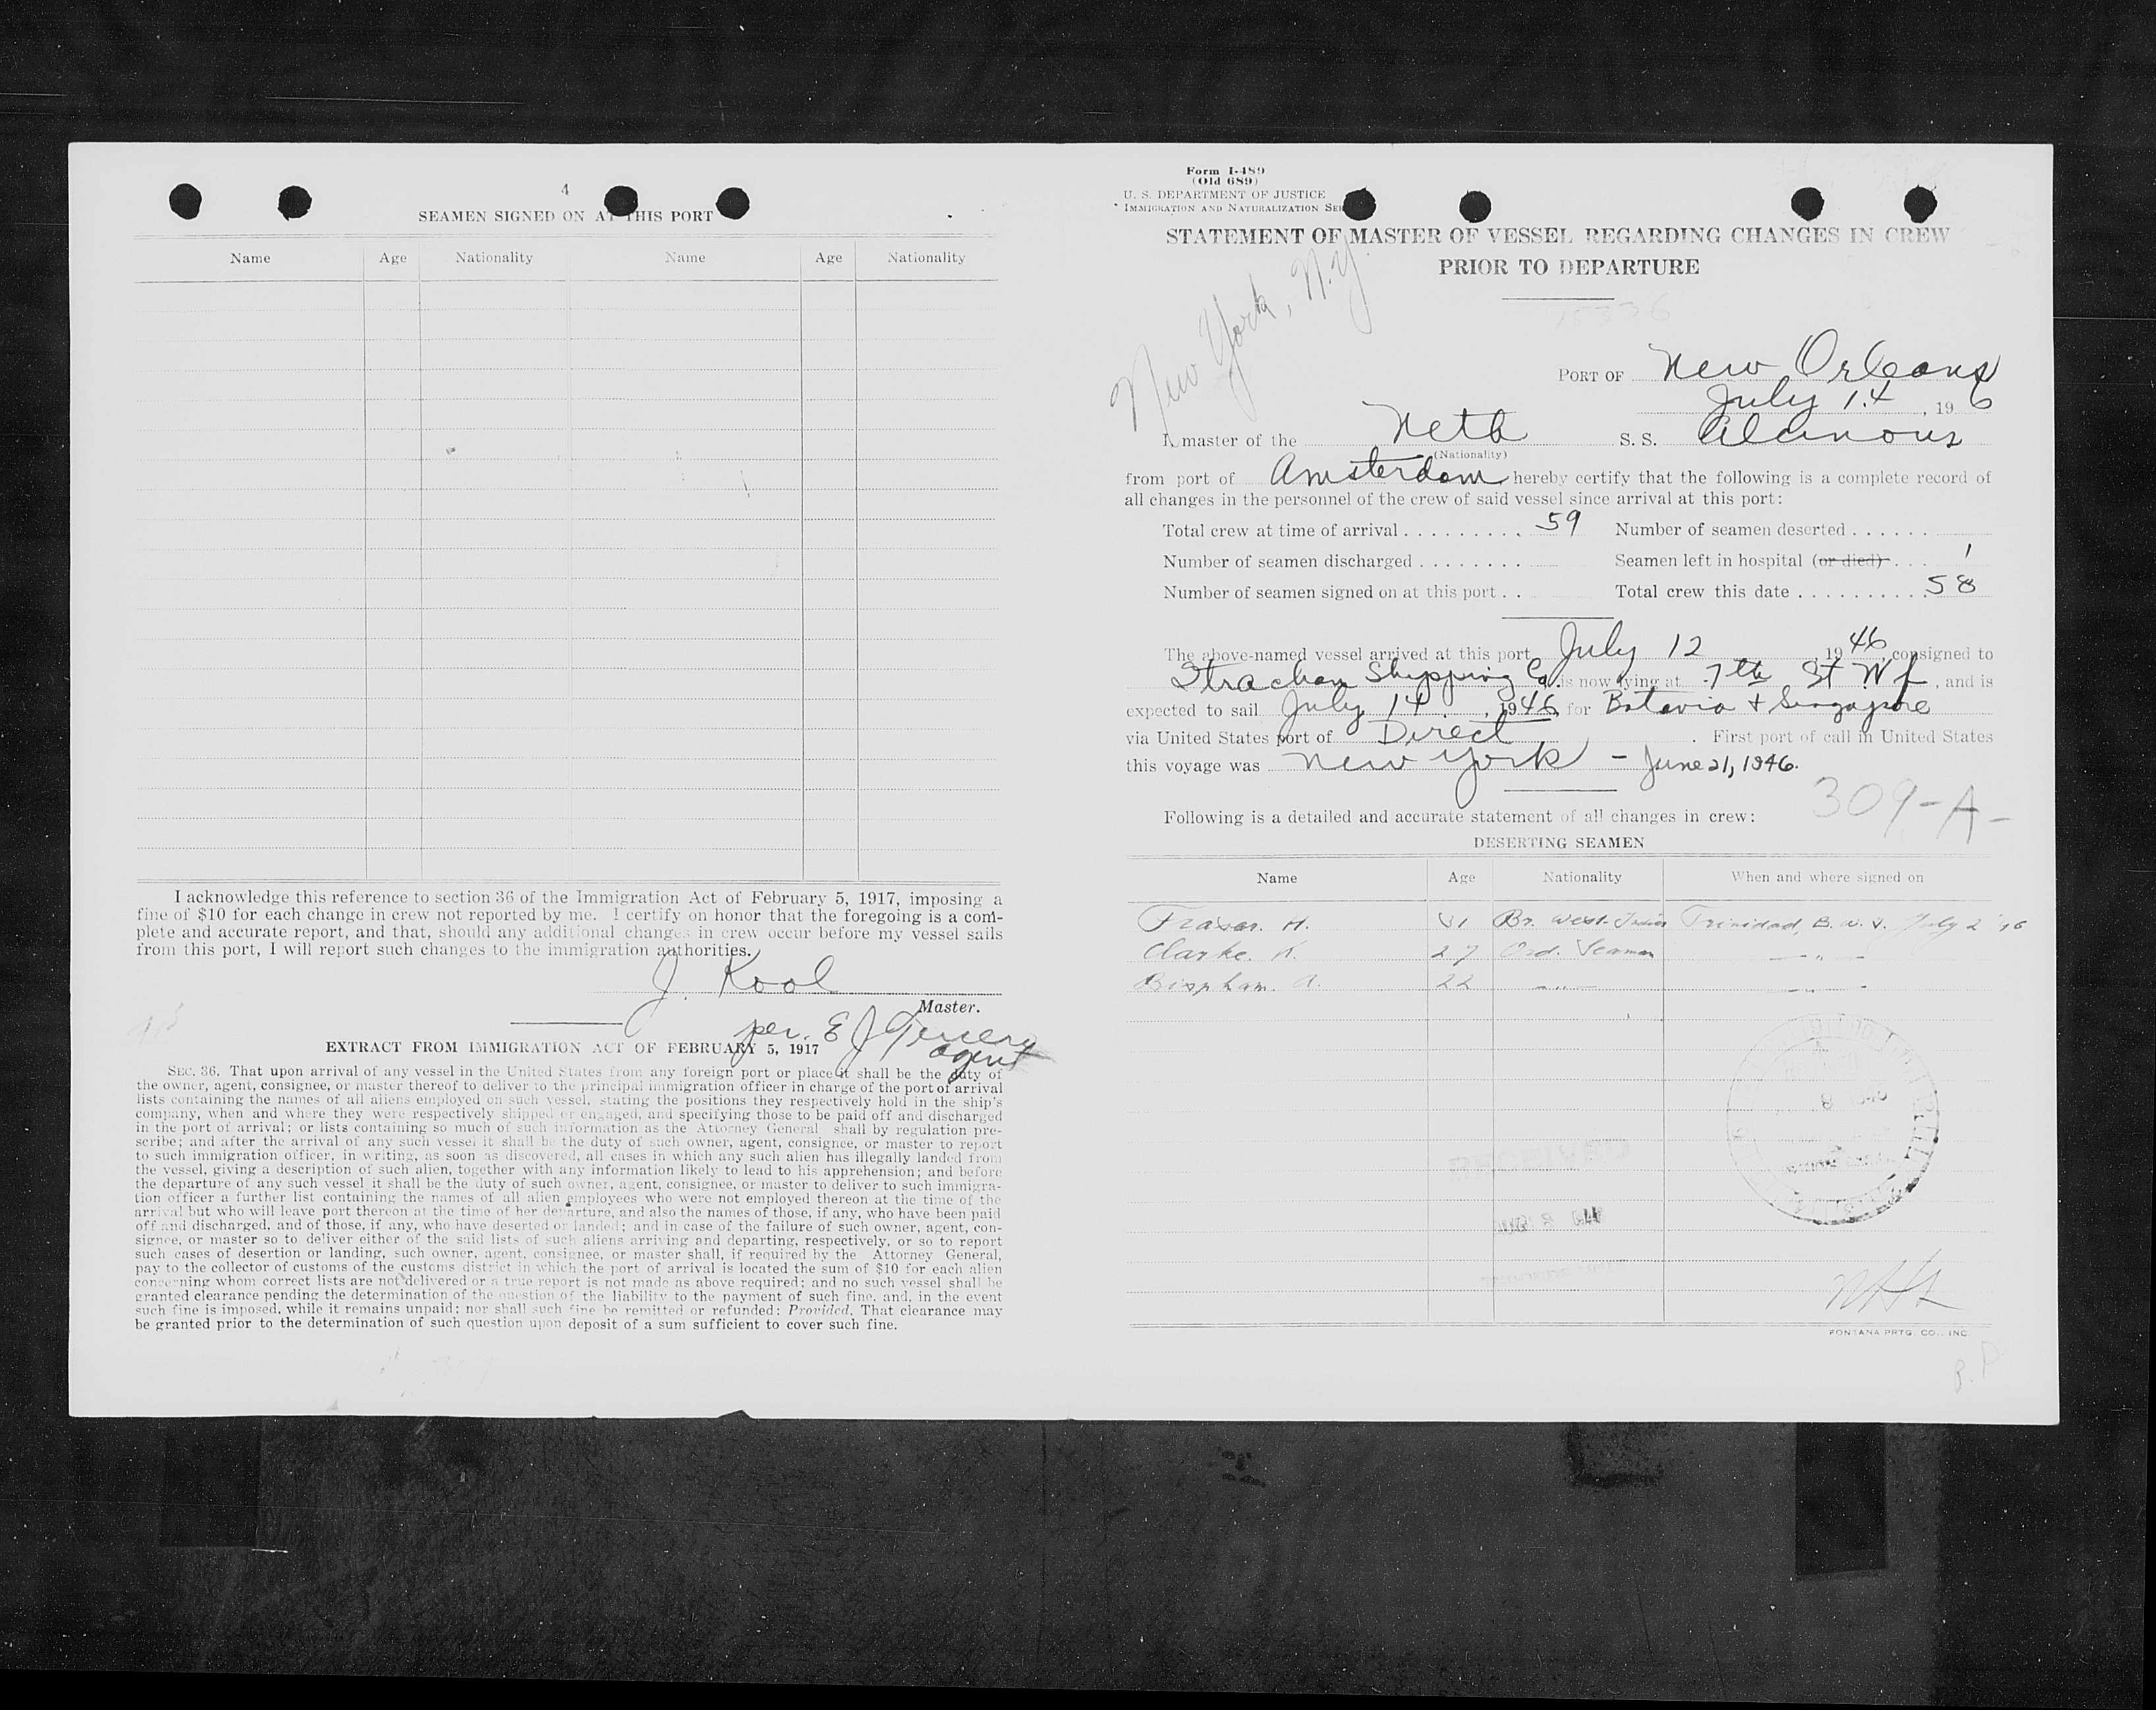 4
SEAMEN SIGNED ON AT THIS PORT
Name Age Nationality Name Age Nationality
I acknowledge this reference to section 36 of the Immigration Act of February 5, 1917, imposing a
fine of $10 for each change in crew not reported by me. I certify on honor that the foregoing is a com-
plete and accurate report, and that, should any additional changes in crew occur before my vessel sails
from this port, I will report such changes to the immigration authorities.
J. Kool
Master.
per. E J
agent
EXTRACT FROM IMMIGRATION ACT OF FEBRUARY 5, 1917
SEC. 36. That upon arrival of any vessel in the United States from any foreign port or place it shall be the duty of
the owner, agent, consignee, or master thereof to deliver to the principal immigration officer in charge of the port of arrival
lists containing the names of all aliens employed on such vessel, stating the positions they respectively hold in the ship's
company, when and where they were respectively shipped or engaged, and specifying those to be paid off and discharged
in the port of arrival; or lists containing so much of such information as the Attorney General shall by regulation pre-
scribe; and after the arrival of any such vessel it shall be the duty of such owner, agent, consignee, or master to report
to such immigration officer, in writing, as soon as discovered, all cases in which any such alien has illegally landed from
the vessel, giving a description of such alien, together with any information likely to lead to his apprehension; and before
the departure of any such vessel it shall be the duty of such owner, agent, consignee, or master to deliver to such immigra-
tion officer a further list containing the names of all alien employees who were not employed thereon at the time of the
arrival but who will leave port thereon at the time of her departure, and also the names of those, if any, who have been paid
off and discharged, and of those, if any, who have deserted or landed; and in case of the failure of such owner, agent, con-
signee, or master so to deliver either of the said lists of such aliens arriving and departing, respectively, or so to report
such cases of desertion or landing, such owner, agent, consignee, or master shall, if required by the Attorney General,
pay to the collector of customs of the customs district in which the port of arrival is located the sum of $10 for each alien
concerning whom correct lists are not delivered or a true report is not made as above required; and no such vessel shall be
granted clearance pending the determination of the question of the liability to the payment of such fine, and, in the event
such fine is imposed, while it remains unpaid; nor shall such fine be remitted or refunded: Provided, That clearance may
be granted prior to the determination of such question upon deposit of a sum sufficient to cover such fine.
Form I-489
(Old 689)
U. S. DEPARTMENT OF JUSTICE
IMMIGRATION AND NATURALIZATION SER
STATEMENT OF MASTER OF VESSEL REGARDING CHANGES IN CREW
PRIOR TO DEPARTURE
New York, N.Y.
PORT OF New Orleans
July 14, 19 6
I, master of the Neth S. S. Alcinous
(Nationality)
from port of Amsterdam hereby certify that the following is a complete record of
all changes in the personnel of the crew of said vessel since arrival at this port:
Total crew at time of arrival . . . . . . . . . . 59 Number of seamen deserted . . . . . .
Number of seamen discharged . . . . . . . . Seamen left in hospital (or died) . . . 1
Number of seamen signed on at this port . . Total crew this date . . . . . . . . . . 58
The above-named vessel arrived at this port July 12 1946 consigned to
Strachan Shipping Co. is now lying at 7th St Wf, and is
expected to sail July 14, 1946, for Batavia + Singapore
via United States port of Direct. First port of call in United States
this voyage was New York - June 21, 1946.
309-A-
Following is a detailed and accurate statement of all changes in crew:
DESERTING SEAMEN
Name Age Nationality When and where signed on
Fraser. H. 31 Br. West. Indies Trinidad, B. W. I. July 2 '46
Clarke. K. 27 Ord. Seaman — " —
Bispham. A. 22 — " — — " —
RECEIVED
FONTANA PRTG. CO., INC.